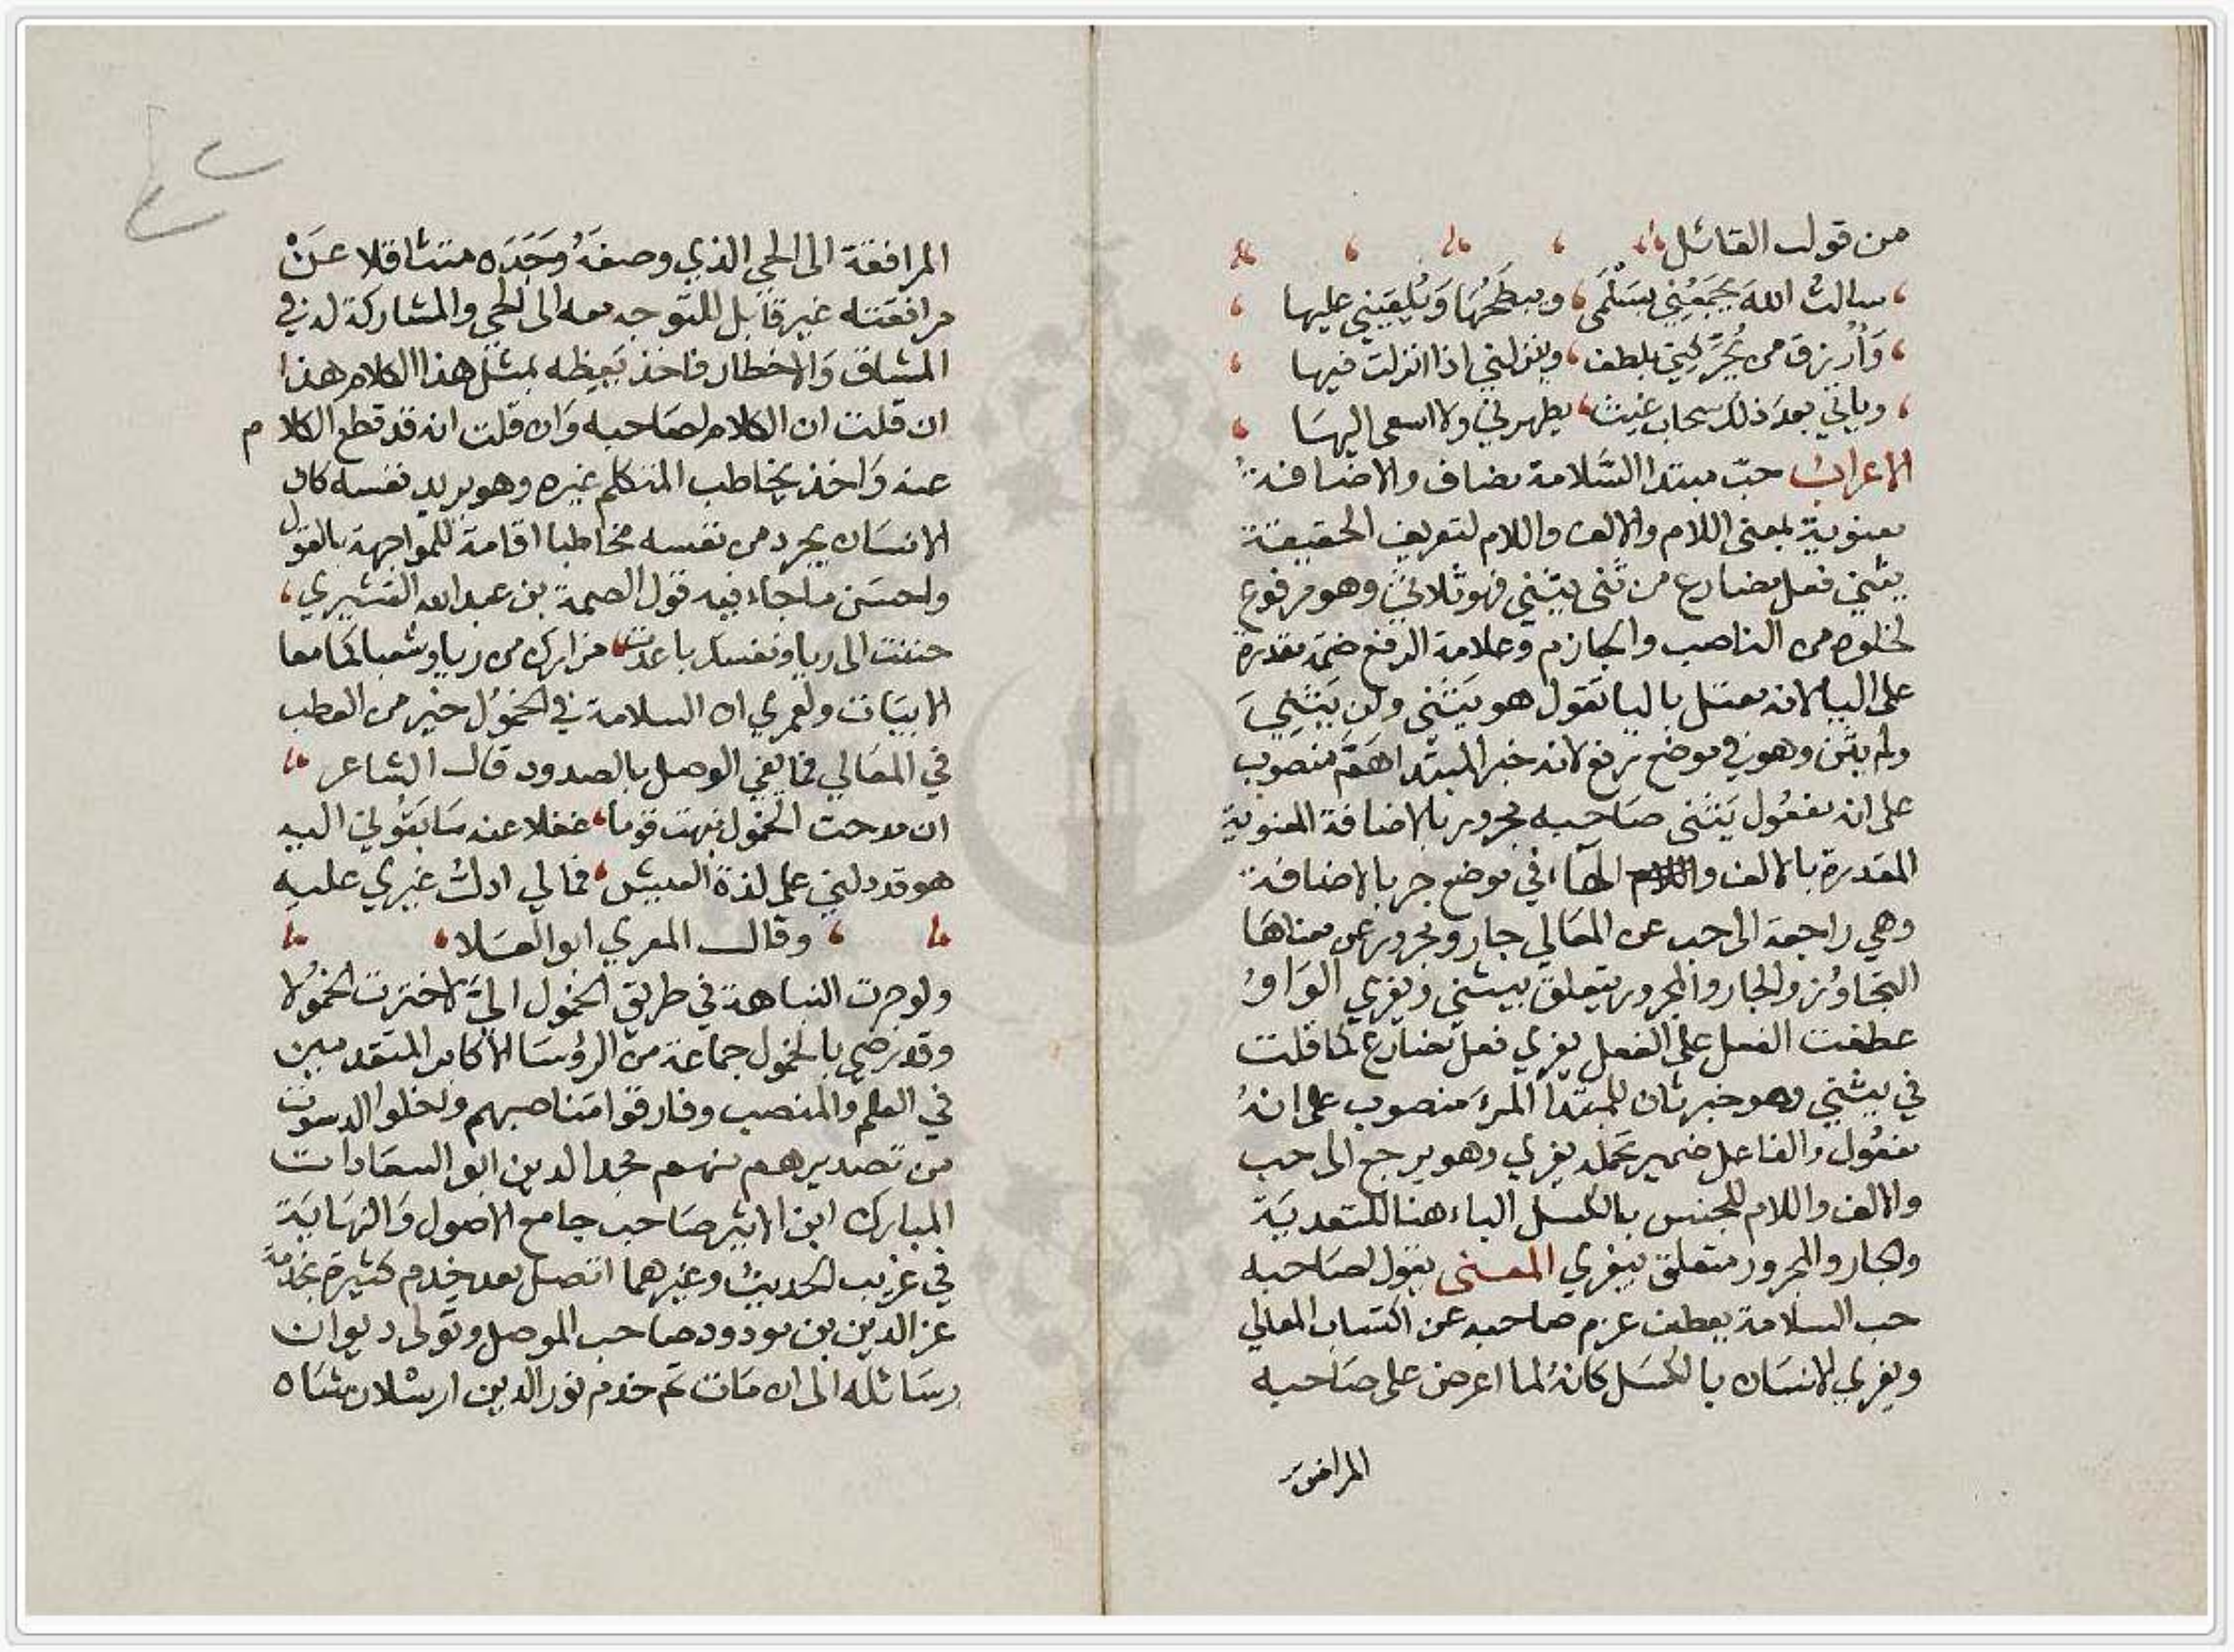 من قول القائل
سالت الله يجمعني بسلمى ويبطحها ويلقيني عليها
وارزق من يحركني بلطف وينزلني اذا انزلت فيها
وياتي بعد ذلك سحاب غيث يطهرني ولا اسعى اليها
الاعراب حب مبتدا السلامة مضاف والاضافة
معنوية بمعنى اللام والالف واللام لتعريف الحقيقة
يثني فعل مضارع من ثنى يثني فهو ثلاثي وهو مرفوع
لخلوه من الناصب والجازم وعلامة الرفع ضمة مقدرة
على اليا لانه معتل باليا تقول هو يثني ولن يثني
ولم يثن وهو في موضع رفع لانه خبر المبتدا هم منصوب
على انه مفعول يثني صاحبه مجرور بالاضافة المعنوية
المقدرة بالالف واللام الهاء في موضع جر بالاضافة
وهي راجعة الى حب عن المعالي جار ومجرور عن معناها
التجاوز والجار والمجرور يتعلق بيثني ويغري الواو
عطفت الفعل على الفعل يغري فعل مضارع كما قلت
في يثني وهو خبر ثان للمبتدا المرء منصوب على انه
مفعول والفاعل ضمير تحمله يغري وهو يرجع الى حب
والالف واللام للجنس بالكسل الباء هنا للتعدية
والجار والمجرور متعلق بيغري المعنى يقول لصاحبه
حب السلامة يعطف عزم صاحبه عن اكتساب المعالي
ويغري الانسان بالكسل كانه لما اعرض على صاحبه
المرافقة
المرافقة الى الحي الذي وصفه وجده متثاقلا عن
مرافقته غير قابل للتوجه معه الى الحي والمشاركة له في
المشاق والاخطار فاخذ يعظه بمثل هذا الكلام هذا
ان قلت ان الكلام لصاحبه وان قلت انه قد قطع الكلام
عنه واخذ يخاطب المتكلم غيره وهو يريد نفسه كان
الانسان يجرد من نفسه مخاطبا اقامة للمواجهة بالقول
واحسن ما جاء فيه قول الصمة بن عبد الله القشيري
حننت الى ريا ونفسك باعدت مزارك من ريا وشعباكما معا
الابيات ولعمري ان السلامة في الخمول خير من العطب
في المعالي فما يفي الوصل بالصدود قال الشاعر
ان مدحت الخمول نبهت قوما غفلا عنه سابقوني اليه
هو قد دلني على لذة العيش فمالي ادل غيري عليه
وقال المعري ابو العلا
ولو جرت النباهة في طريق الخمول الي لاخترت الخمولا
وقد رضي بالخمول جماعة من الرؤسا الاكابر المتقدمين
في العلم والمنصب وفارقوا مناصبهم واخلوا الدسوت
من تصديرهم منهم مجد الدين ابو السعادات
المبارك ابن الاثير صاحب جامع الاصول والنهاية
في غريب الحديث وغيرهما اتصل بعد خدم كثيرة بخدمة
عز الدين بن مودود صاحب الموصل وتولى ديوان
رسائله الى ان مات ثم خدم نور الدين ارسلان شاه